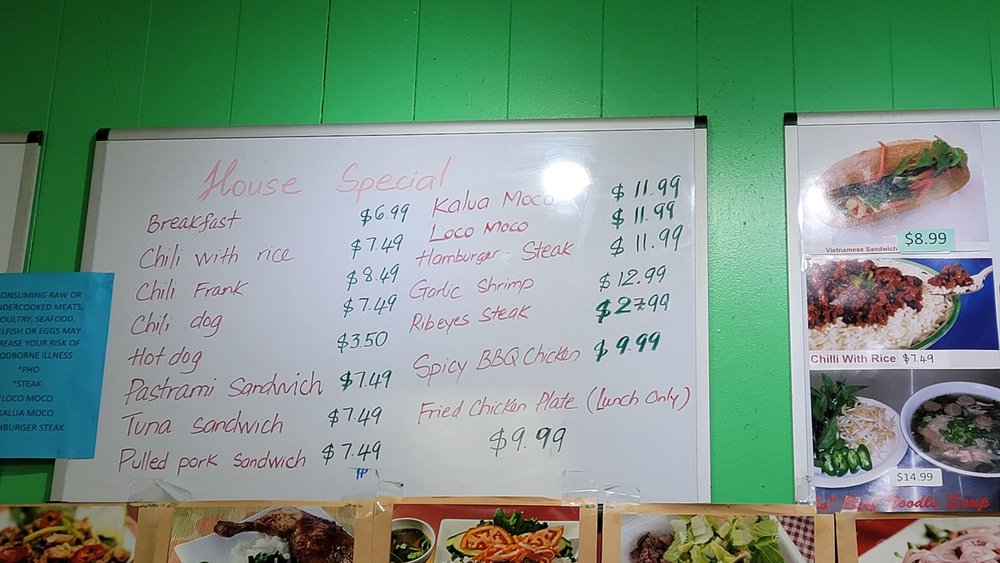 House Special
Breakfast $6.99
Chili with rice $7.49
Chili Frank $8.49
Chili dog $7.49
Hot dog $3.50
Pastrami Sandwich $7.49
Tuna Sandwich $7.49
Pulled pork Sandwich $7.49
Kalua Moco $11.99
Loco Moco $11.99
Hamburger Steak $11.99
Garlic Shrimp $12.99
Ribeyes Steak $27.99
Spicy BBQ Chicken $9.99
Fried Chicken Plate (Lunch Only)
$9.99
CONSUMING RAW OR
UNDERCOOKED MEATS,
POULTRY, SEAFOOD,
SHELFISH OR EGGS MAY
INCREASE YOUR RISK OF
FOODBORNE ILLNESS
*PHO
*STEAK
LOCO MOCO
KALUA MOCO
HAMBURGER STEAK
Vietnamese Sandwich $8.99
Chilli With Rice $7.49
$14.99
Noodle Soup